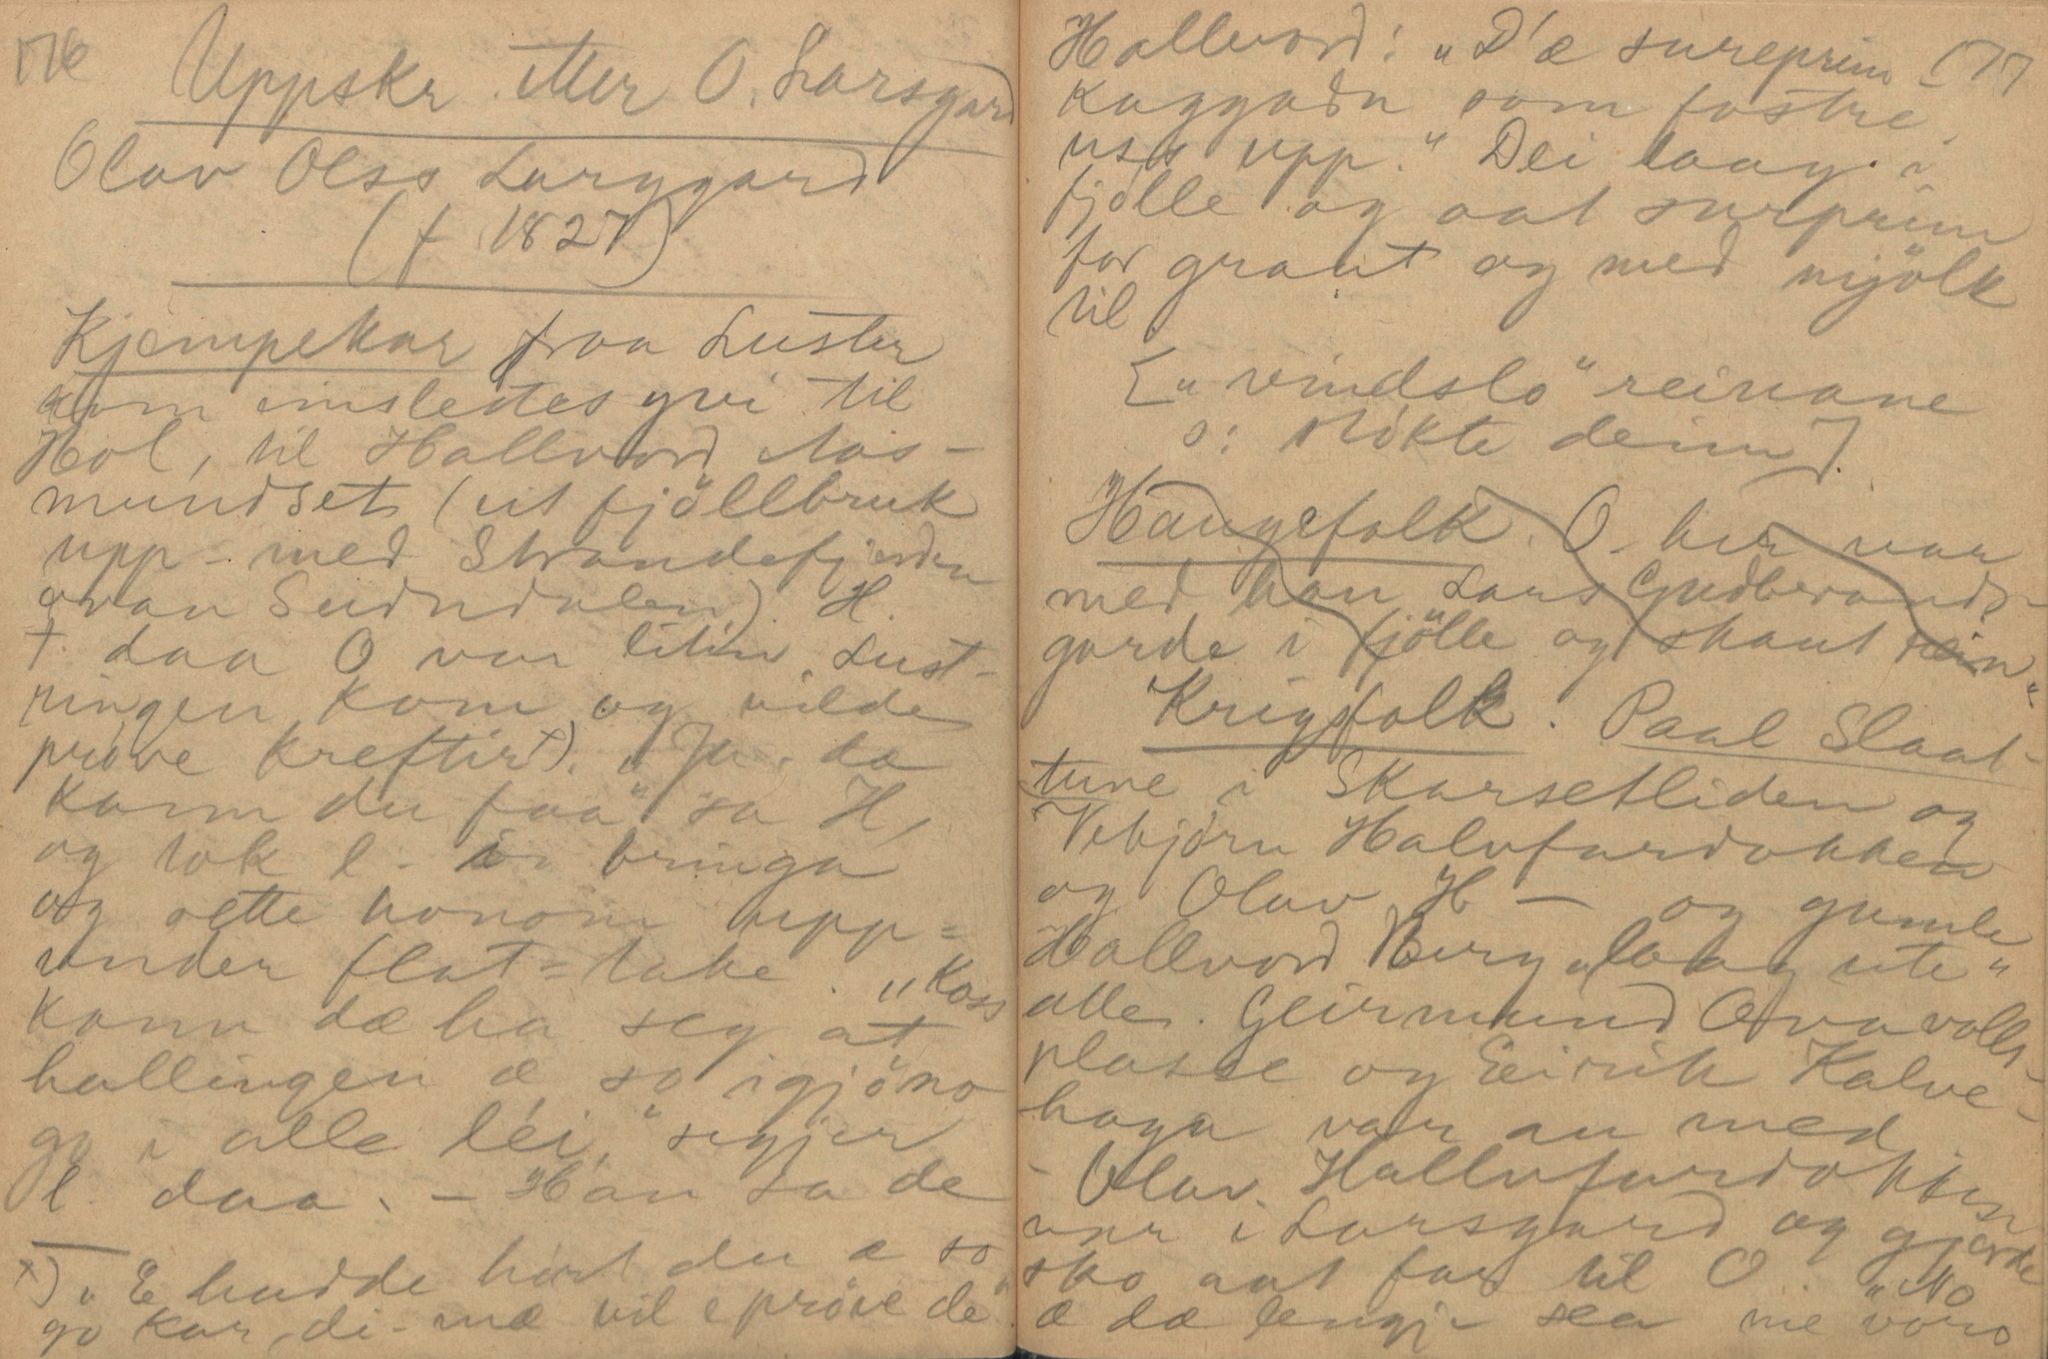 176
Uppskr. etter O. Larsgard
Olav Olss Larsgard
(f 1827)
Kjempekar fraa Luster
kom imsledtes yvi til
Hol, til Hallvord Aas-
mundset (eit fjöllbruk
upp med Strandefjorden
ovan Sudndalen). H.
† daa O var liten. Lust-
ringen kom og vilde
pröve krefter x). "Ja da
kann du faa" sa H,
og tok l. i bringa
og sette honom upp-
under flat-take. "Koss
kann dæ ha seg at
hallingen æ so igjöno
go i alle lei," segjer
l. daa. – Han sa de
x) "E hadde hört du æ so
go kar, di- mæ vil e pröve de"
177
Hallvord: "D'æ sureprim-
kaggadn som fostre
uss upp." Dei laag i
fjölle og aat surprim
for graut og med mjölk
til.
["vindslo" reinane
o: stökte deim].
Haugefolk. O. her var
med han Lars Gudbrands-
garde i fjölle og skaut rein
Krigsfolk. Paal Slaat-
tune i Skarsetliden og
Vebjörn Halvfardokken
og Olav H — og gamle
Hallvord Berg "laag ute"
alle. Geirmund Ovavolls-
plasse og Eirik Kalve-
haga var au med
- Olav Hallvfardokken
var i Larsgard og gjorde
sko aat far til O. "No
æ dæ lengje sea me voro